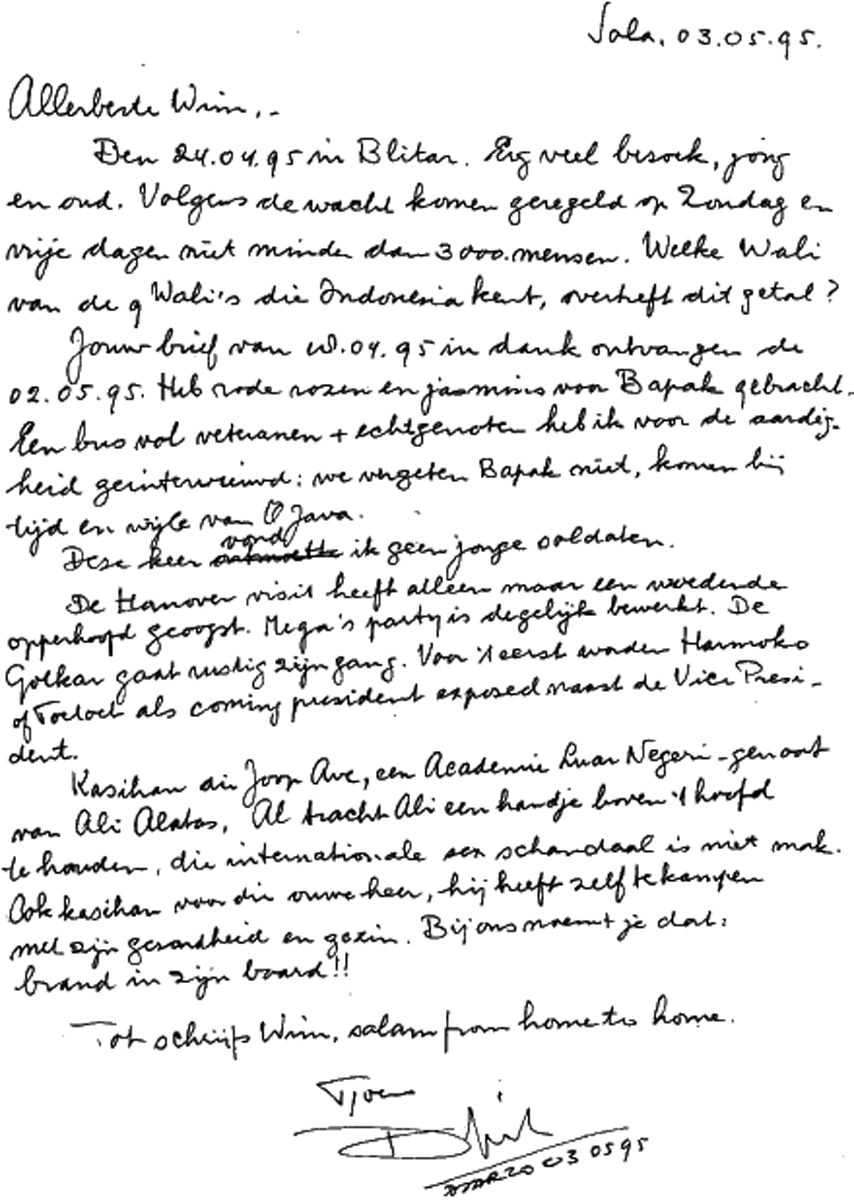 Sala, 03.05.95.
Allerbeste Wim,.-
Den 24.04.95 in Blitar. Erg veel bezoek, jong
en oud. Volgens de wacht komen geregeld op Zondag en
vrije dagen niet minder dan 3000.mensen. Welke Wali
van de 9 Wali's die Indonesia kent, overtreft dit getal?
Jouw brief van .04.95 in dank ontvangen de
02.05.95. Heb rode rozen en jasmins voor Bapak gebracht.
Een bus vol veteranen + echtgenoten heb ik voor de aardig-
heid geinterviewd: we vergeten Bapak niet, komen bij
tijd en wijle van O Java.
Deze keer vond ik geen jonge soldaten.
De Hanover visit heeft alleen maar een woedende
opperhoofd geoogst. Mega's party is degelijk bewerkt. De
Golkar gaat rustig zijn gang. Voor 't eerst worden Harmoko
of als coming president exposed naast de Vice Presi-
dent.
Kasihan die Joop Ave, een Academie Luar Negeri-genoot
van Ali Alatas, Al tracht Ali een handje boven 't hoofd
te houden, die internationale sex schandaal is niet mak.
Ook kasihan voor die ouwe heer, hij heeft zelf te kampen
met zijn gezondheid en gezin. Bij ons noemt je dat:
brand in zijn baard!!
Tot schrijfs Wim, salam from home to home.
Tjoe
03 05 95